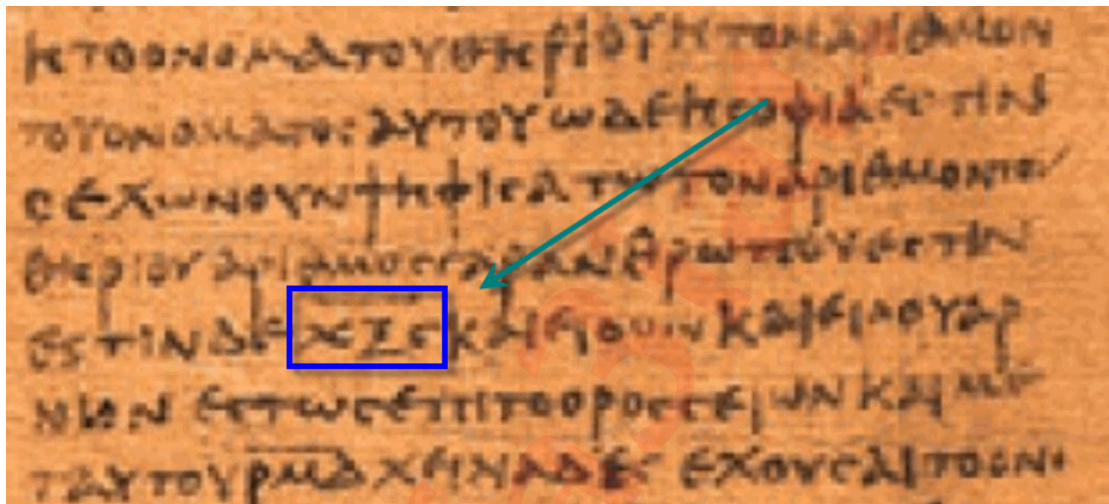 ΗΤΟΟΝΟΜΑΤΟΥΘΗΡΙΟΥΗΤΟΝΑΡΙΘΜΟΝ
ΤΟΥΟΝΟΜΑΤΟϹΑΥΤΟΥΩΔΕΗϹΟΦΙΑΕϹΤΙΝ
ΟΕΧΩΝΟΥΝΨΗΦΙϹΑΤΩΤΟΝΑΡΙΘΜΟΝΤΟΥ
ΘΗΡΙΟΥΑΡΙΘΜΟϹΓΑΡΑΝΘΡΩΠΟΥΕϹΤΙΝ
ΕϹΤΙΝΔΕΧΞϚΚΑΙΕΙΔΟΝΚΑΙΕΙΔΟΥΑΡ
ΝΙΟΝΕϹΤΩϹΕΠΙΤΟΟΡΟϹϹΕΙΩΝΚΑΙΜΕ
ΤΑΥΤΟΥΡΜΔΧΕΙΛΙΑΔΕϹΕΧΟΥϹΑΙΤΟΟΝΟ